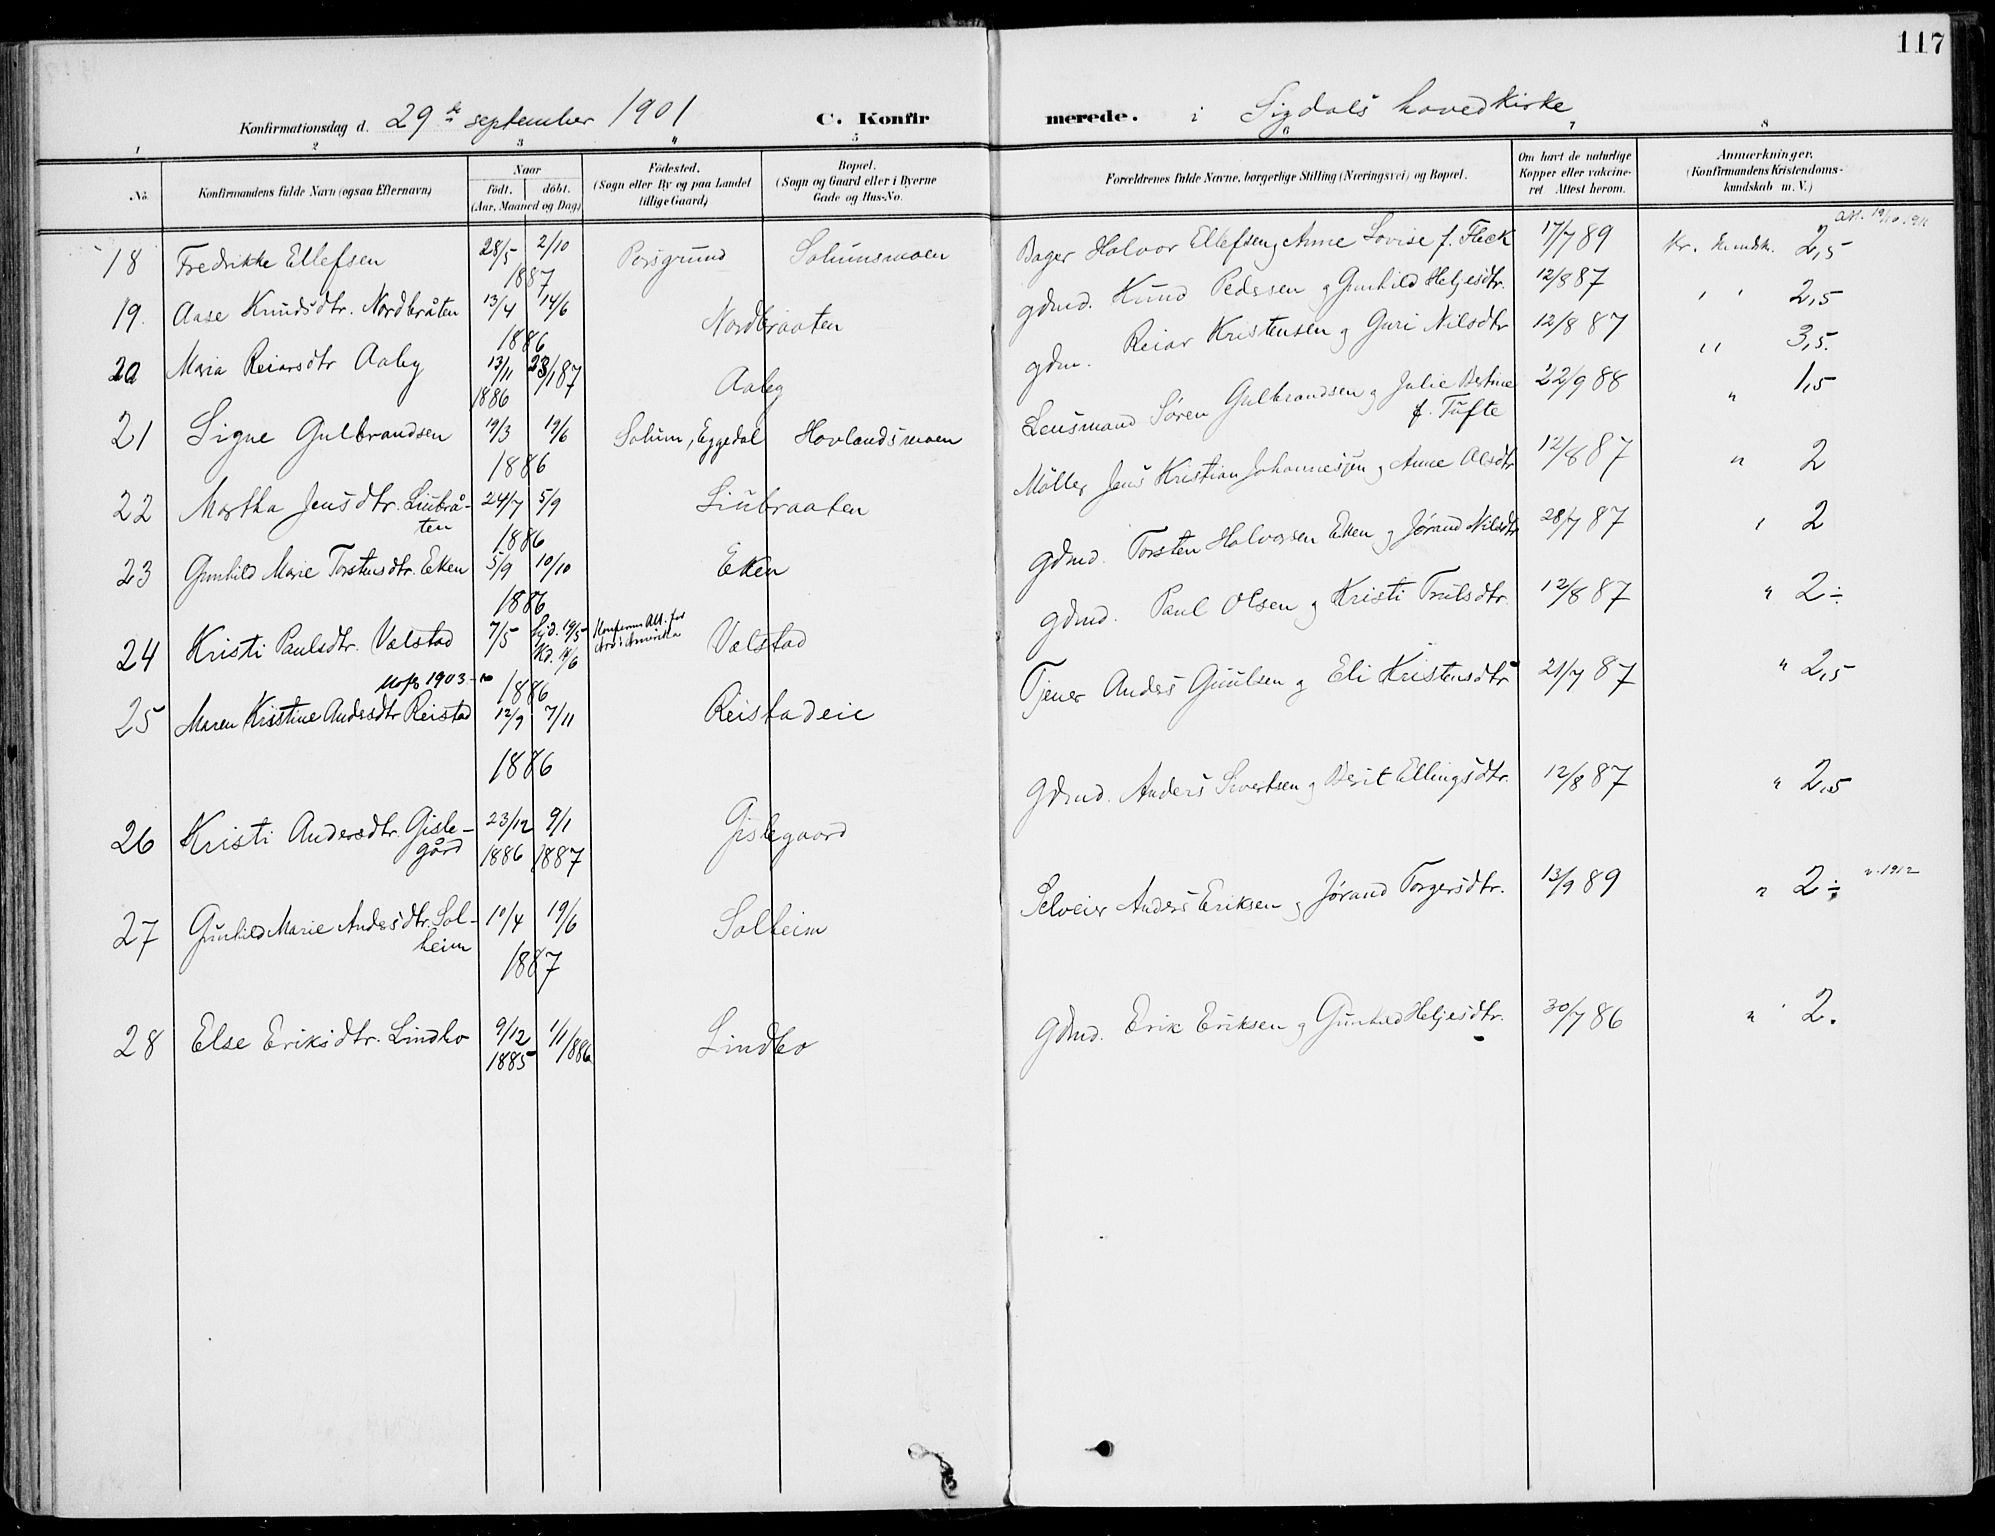 117
Konfirmationsdag d. 29de september 1901 C. Konfirmerede. i Sigdals hovedkirke
1 2 3 4 5 6 7 8
No. Konfirmandens fulde Navn (ogsaa Efternavn) Naar født. døbt. (Aar, Maaned og Dag) Fødested. (Sogn eller By og paa Landet tillige Gaard) Bopæl. (Sogn og Gaard eller i Byerne Gade og Hus-No. Forældrenes fulde Navne, borgerlige Stilling (Næringsvei) og Bopæl. Om havt de naturlige Kopper eller vaccineret Attest herom. Anmærkninger. (Konfirmandens Kristendomskundskab m. V.)
18 Fredrikke Ellefsen 28/5 2/10 1887 Porsgrund Solumsmoen Bager Halvor Ellefsen, Anne Lovise f. Fleck 17/7 89 Kr. kundsk. 2,5
19. Aase Knudsdtr. Nordbråten 13/4 14/6 1886 Nordbraaten gdmd. Knud Pedersen og Gunhild Heljesdtr. 12/8 87 " " 2,5
20 Maria Reiarsdtr Aaby 13/11 1886 23/1 87 Aaby gdm. Reiar Kristensen og Guri Nilsdtr 12/8 87 " 3,5.
21 Signe Gulbrandsen 19/3 19/6 1886 Solum, Eggedal Hovlandsmoen Lensmand Søren Gulbrandsen og Julie Bertine f. Tufte 22/9 88 " 1,5
22 Martha Jensdtr. Liubråten 24/7 5/9 1886 Liubraaten Møller Jens Kristian Johannesen og Anne Olsdtr 12/8 87 " 2
23 Gunhild Marie Torstensdtr. Eken 5/9 10/10 1886 Eken gdmd. Torsten Halvorsen Eken og Jørand Nilsdtr 28/7 87 " 2
24 Kristi Paulsdtr. Valstad 7/5 Hjd. 19/5 Kd. 14/6 1886 Valstad gdmd. Paul Olsen og Kristi Trulsdtr. 12/8 87 " 2÷
25 Maren Kristine Andersdtr Reistad 12/9 7/11 1886 Reistadeie Tjener Anders Guulsen og Eli Kristensdtr 21/7 87 " 2,5
26 Kristi Andersdtr. Gislegård 23/12 1886 9/1 1887 Gislegaard Gdmd. Anders Sivertsen og Berit Ellingsdtr. 12/8 87 " 2,5
27 Gunhild Marie Andersdtr. Solheim 10/4 19/6 1887 Solheim Selveier Anders Eriksen og Jørand Torgersdtr. 13/9 89 " 2÷ 1912
28 Else Eriksdtr. Lindbo 9/12 1885 1/1 1886 Lindbo Gdmd. Erik Eriksen og Gunhild Heljesdtr. 30/7 86 " 2.